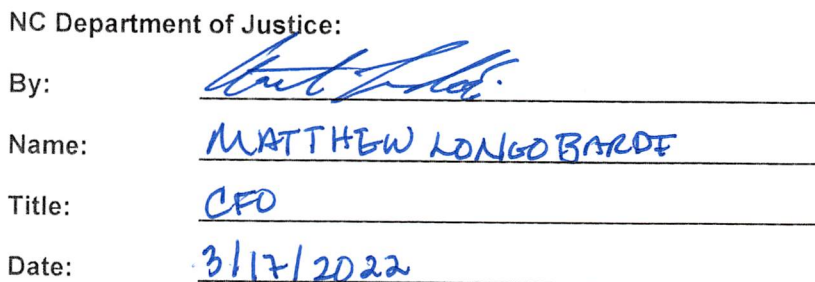 NC Department of Justice:
By:
Name: MATTHEW LONGOBARDI
Title: CFO
Date: 3/17/2022